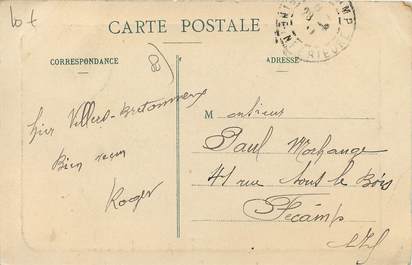 lot
CARTE POSTALE
CORRESPONDANCE
ADRESSE
80
Villers-Bretonneux
Bien reçu
Roger
Monsieur
Paul Morhange
41 rue sous le Bois
Fécamp